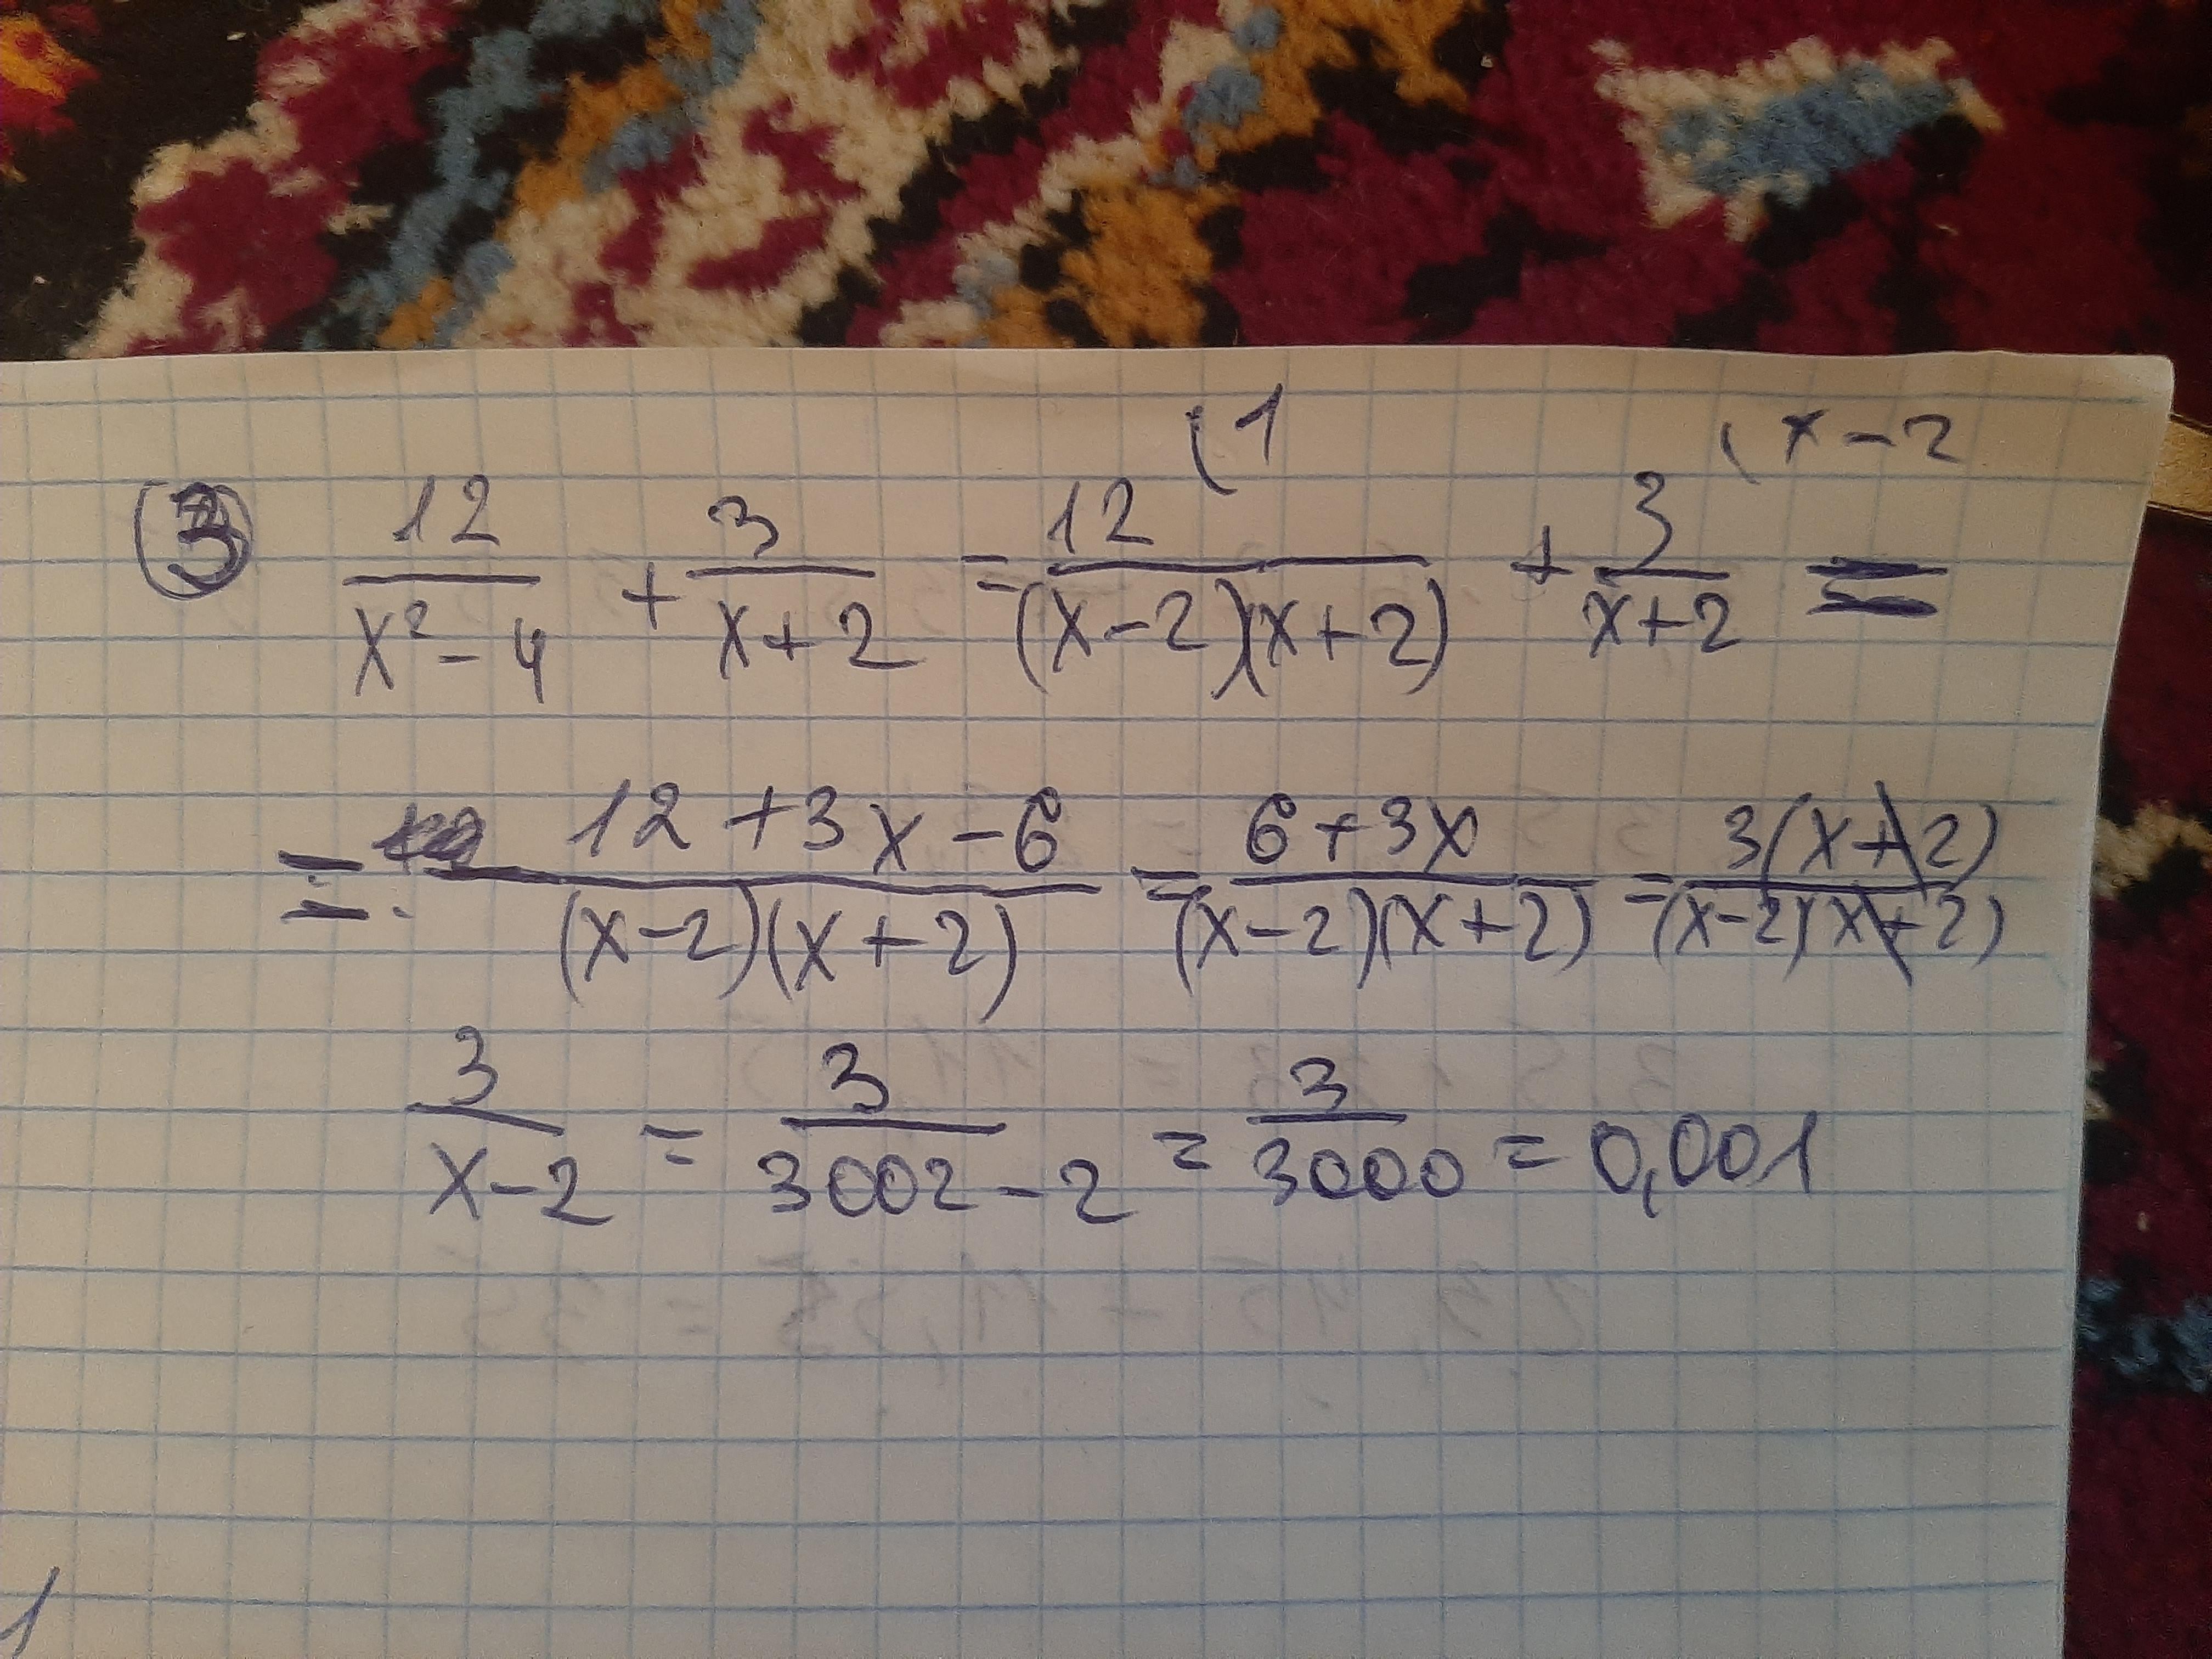 (1 (x-2
③ 12/(x²-4) + 3/(x+2) = 12/((x-2)(x+2)) + 3/(x+2) =
= (12+3x-6)/((x-2)(x+2)) = (6+3x)/((x-2)(x+2)) = 3(x+2)/((x-2)(x+2))
3/(x-2) = 3/(3002-2) = 3/3000 = 0,001